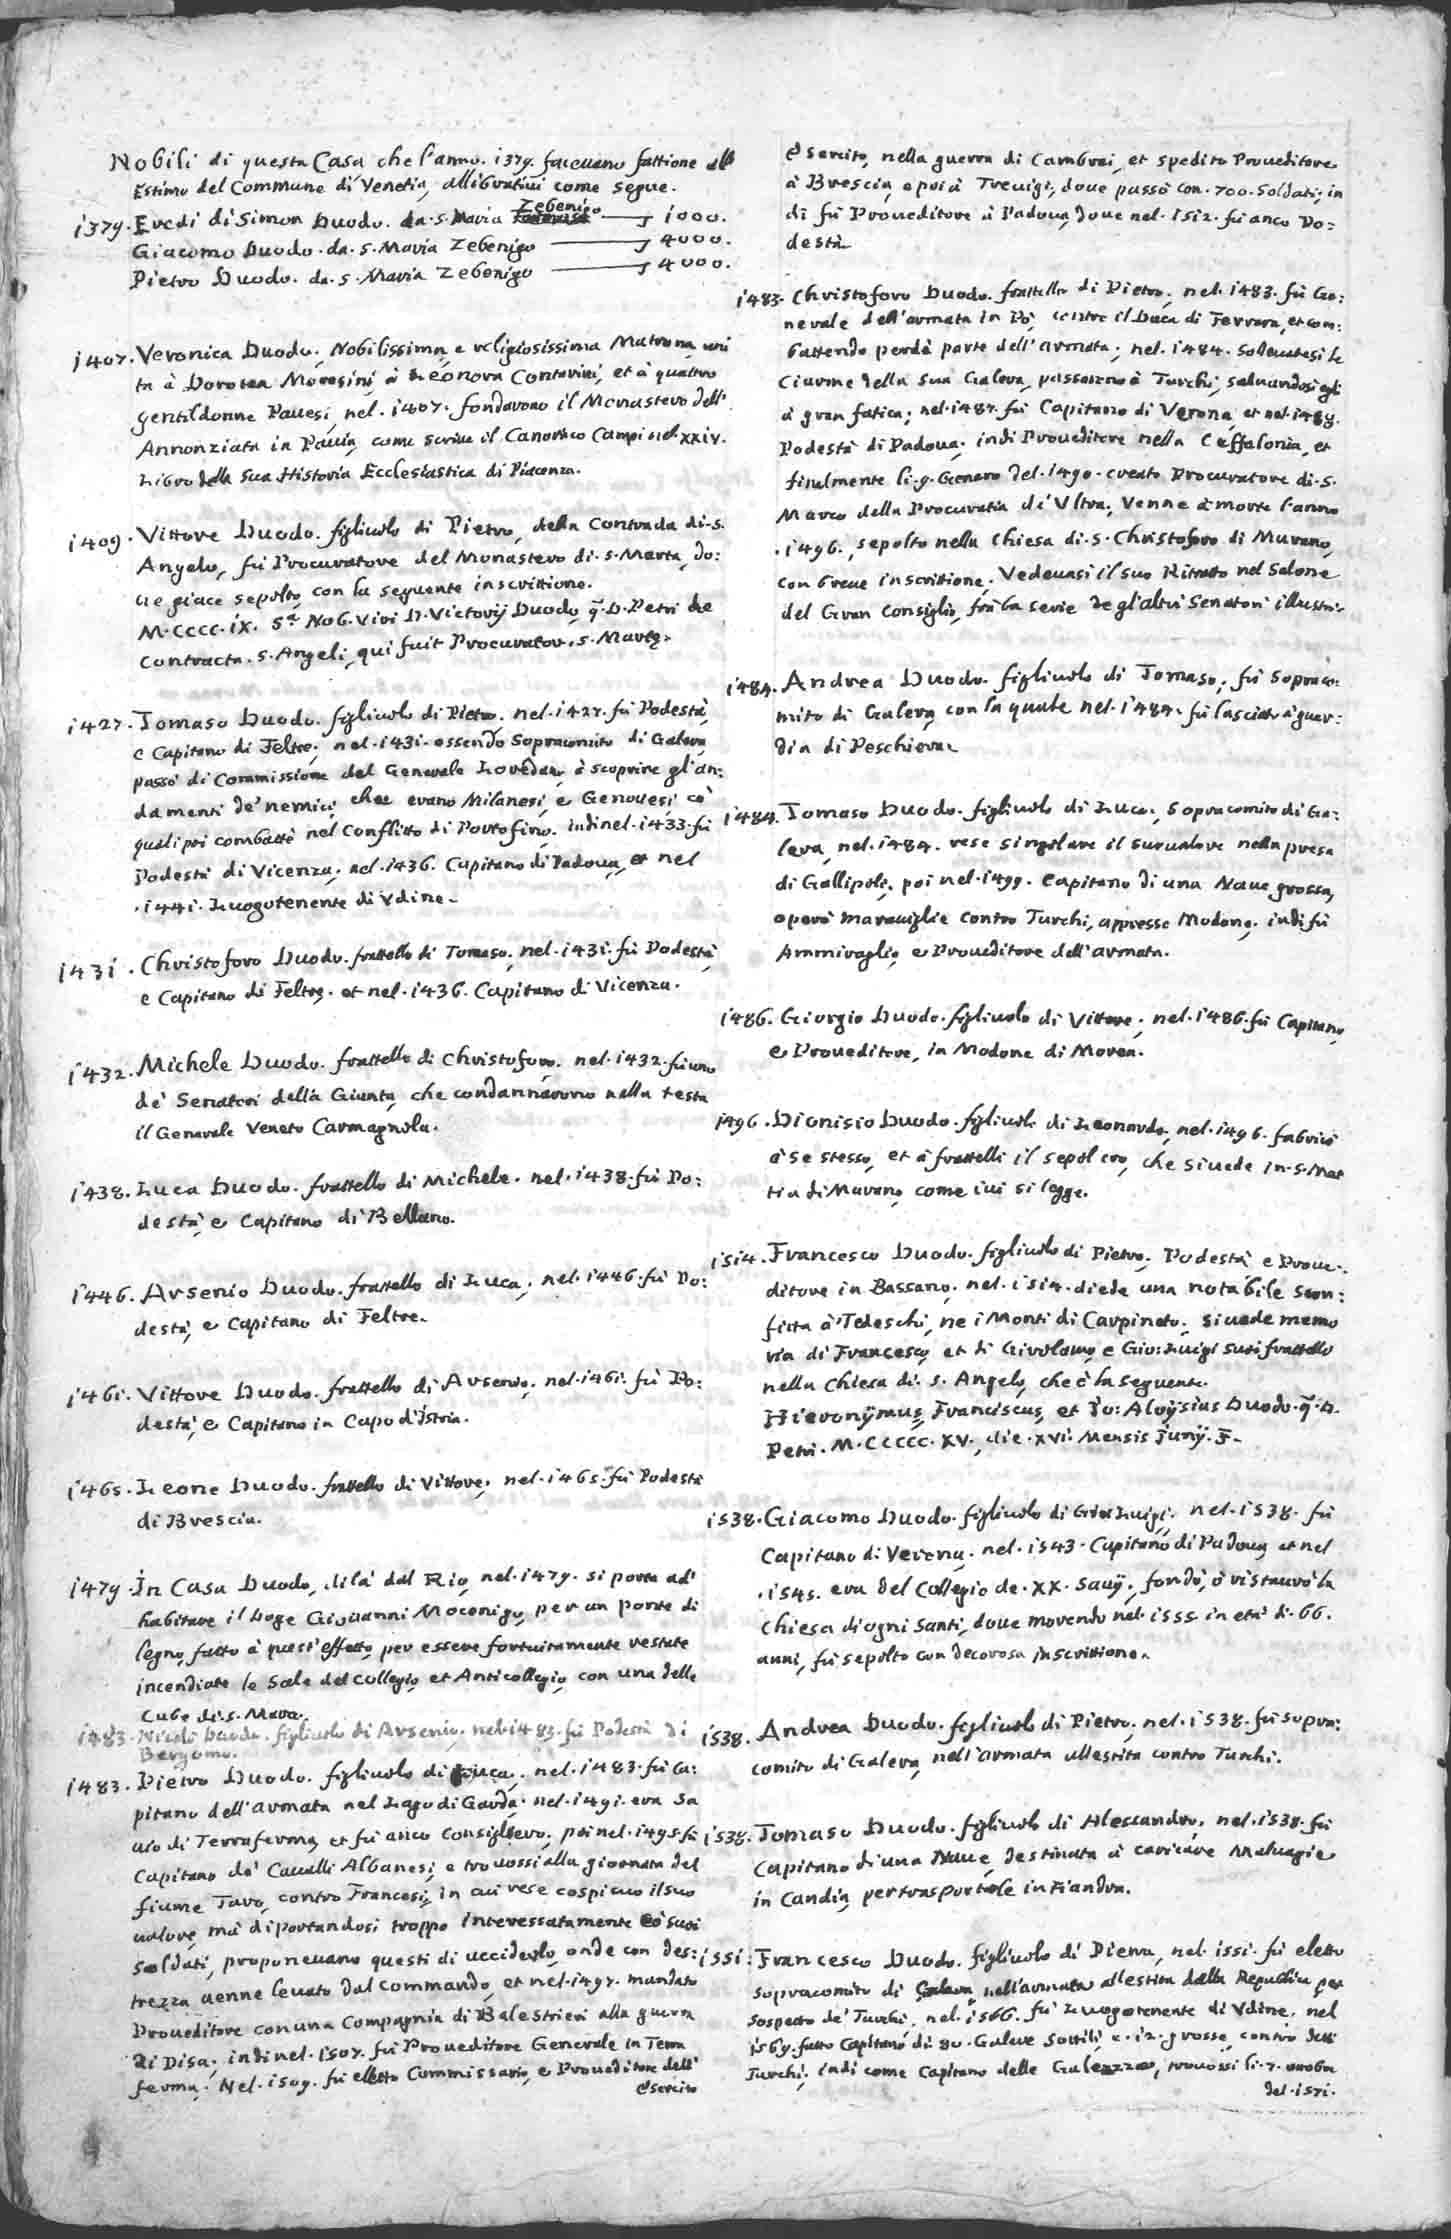 Nobili di questa Casa che l'anno. 1379. faceuano fattione all'
Estimo del Commune di Venetia, allibratiui come segue.
1379. Eredi di Simon Duodo. da. S. Maria Zebenigo 1000.
Giacomo Duodo. da. S. Maria Zebenigo 4000.
Pietro Duodo. da. S. Maria Zebenigo 4000.
1407. Veronica Duodo, Nobilissima, e religiosissima Matrona, uni
ta à Dorotea Moresini, à Leonora Contarini, et à quattro
gentildonne Pauesi, nel. 1407. fondarono il Monastero dell'
Annonziata in Pauia, come scriue il Canonico Campi nel. XXIV.
Libro della sua Historia Ecclesiastica di Piacenza.
1409. Vittore Duodo. figliuolo di Pietro, della Contrada di. S.
Angelo, fù Procuratore del Monastero di. S. Marta, do:
ue giace sepolto, con la seguente inscrittione.
M. CCCC. IX. Sa. Nob. Viri D. Victorij Duodo, q. D. Petri de
Contracta. S. Angeli, qui fuit Procurator. S. Martę.
1427. Tomaso Duodo. figliuolo di Pietro. nel. 1427. fù Podestà,
e Capitano di Feltre; nel. 1431. essendo Sopracomito di Galera,
passò di Commissione del Generale Loredano, à scoprire gl'an:
damenti de' nemici, che erano Milanesi, e Genouesi, co'
quali poi combattè nel Conflitto di Portofino. indi nel. 1433. fù
Podestà di Vicenza, nel. 1436. Capitano di Padoua, et nel
. 1441. Luogotenente di Vdine.
1431. Christoforo Duodo. frattello di Tomaso, nel. 1431. fù Podestà,
e Capitano di Feltre. et nel. 1436. Capitano di Vicenza.
1432. Michele Duodo. frattello di Christoforo. nel. 1432. fù uno
de' Senatori della Giunta, che condannarono nella testa
il Generale Veneto Carmagnola.
1438. Luca Duodo. frattello di Michele. nel. 1438. fù Po:
destà, e Capitano di Belluno.
1446. Arsenio Duodo. frattello di Luca, nel. 1446. fù Po:
destà, e Capitano di Feltre.
1461. Vittore Duodo. frattello di Arsenio, nel. 1461. fù Po:
destà, e Capitano in Capo d'Istria.
1465. Leone Duodo. frattello di Vittore, nel. 1465. fù Podestà
di Brescia.
1479. In Casa Duodo, di là dal Rio, nel. 1479. si portò ad'
habitare il Doge Giouanni Mocenigo, per un ponte di
legno, fatto à quest'effetto, per essere fortuitamente restate
incendiate le Sale del Collegio, et Anticollegio, con una delle
Cube di. S. Marco.
1483. Nicolò Duodo. figliuolo di Arsenio, nel. 1483. fù Podestà di
Bergamo.
1483. Pietro Duodo. figliuolo di Luca, nel. 1483. fù Ca:
pitano dell'armata nel Lago di Garda. nel. 1491. era Sa
uio di Terraferma, et fù anco Consigliero, poi nel. 1495. fù
Capitano de' Caualli Albanesi, e trouossi alla giornata del
fiume Taro, contro Francesi, in cui rese cospicuo il suo
ualore, mà diportandosi troppo interessatamente co' suoi
soldati, proponeuano questi di ucciderlo, onde con des:
trezza uenne leuato dal commando, et nel. 1497. mandato
Proueditore con una Compagnia di Balestrieri alla guerra
di Pisa, indi nel. 1507. fù Proueditore Generale in Terra
ferma. Nel. 1509. fù eletto Commissario, e Proueditore dell'
esercito
esercito, nella guerra di Cambrai, et spedito Proueditore
à Brescia, e poi à Treuigi, doue passò con. 700. soldati; in
di fù Proueditore à Padoua, doue nel. 1512. fù anco Po:
destà.
1483. Christoforo Duodo. frattello di Pietro, nel. 1483. fù Ge:
nerale dell'armata in Pò, contro il Duca di Ferrara, et com:
battendo perdè parte dell'armata, nel. 1484. solleuatesi le
Ciurme della sua Galera, passarono à Turchi, saluandosi egli
à gran fatica; nel. 1487. fù Capitano di Verona, et nel. 1489.
Podestà di Padoua. indi Proueditore nella Ceffalonia, et
finalmente li. 9. Genaro del. 1490. creato Procuratore di. S.
Marco della Procuratia di Vltra, Venne à morte l'anno
. 1496., sepolto nella Chiesa di. S. Christoforo di Murano,
con breue inscrittione. Vedeuasi il suo Ritratto nel Salone
del Gran Consiglio, frà la serie de gl'altri Senatori illustri.
1484. Andrea Duodo. figliuolo di Tomaso, fù Sopraco:
mito di Galera, con la quale nel. 1484. fù lasciato à guar:
dia di Peschiera.
1484. Tomaso Duodo. figliuolo di Luca, Sopracomito di Ga:
lera, nel. 1484. rese singolare il suo ualore nella presa
di Gallipoli, poi nel. 1499. Capitano di una Naue grossa,
operò marauiglie contro Turchi, appresso Modone, indi fù
Ammiraglio, e Proueditore dell'armata.
1486. Giorgio Duodo. figliuolo di Vittore, nel. 1486. fù Capitano,
e Proueditore, in Modone di Morea.
1496. Dionisio Duodo. figliuolo di Leonardo, nel. 1496. fabricò
à se stesso, et à frattelli il sepolcro, che si uede in. S. Mat
tia di Murano, come iui si legge.
1514. Francesco Duodo. figliuolo di Pietro, Podestà e Proue:
ditore in Bassano, nel. 1514. diede una notabile scon:
fitta à Tedeschi, ne i Monti di Carpineto. si uede memo
ria di Francesco, et di Girolamo, e Gio: Luigi suoi frattelli
nella Chiesa di. S. Angelo, che è la seguente.
Hieronÿmus, Franciscus, et Jo: Aloÿsius Duodo. q. D.
Petri. M. CCCCC. XV., die. XVI. Mensis Junij. F.
1538. Giacomo Duodo. figliuolo di Gio: Luigi, nel. 1538. fù
Capitano di Verona, nel. 1543. Capitano di Padoua, et nel
. 1545. era del Collegio de. XX. Sauij. fondò, ò ristaurò la
Chiesa di ogni Santi, doue morendo nel. 1555. in età di. 66.
anni, fù sepolto con decorosa inscrittione.
1538. Andrea Duodo. figliuolo di Pietro, nel. 1538. fù Sopra:
comito di Galera, nell'armata allestita contro Turchi.
1538. Tomaso Duodo. figliuolo di Alessandro, nel. 1538. fù
Capitano di una Naue, destinata à caricare Maluagie
in Candia, per trasportarle in Fiandra.
1551. Francesco Duodo. figliuolo di Piero, nel. 1551. fù eletto
Sopracomito di Galera, nell'armata allestita dalla Republica per
sospetto de' Turchi, nel. 1566. fù Luogotenente di Vdine. nel
1569. fatto Capitano di. 80. Galere sottili, e. 12. grosse, contro detti
Turchi, indi come Capitano delle Galeazze, trouossi li. 7. ottobre
del. 1571.